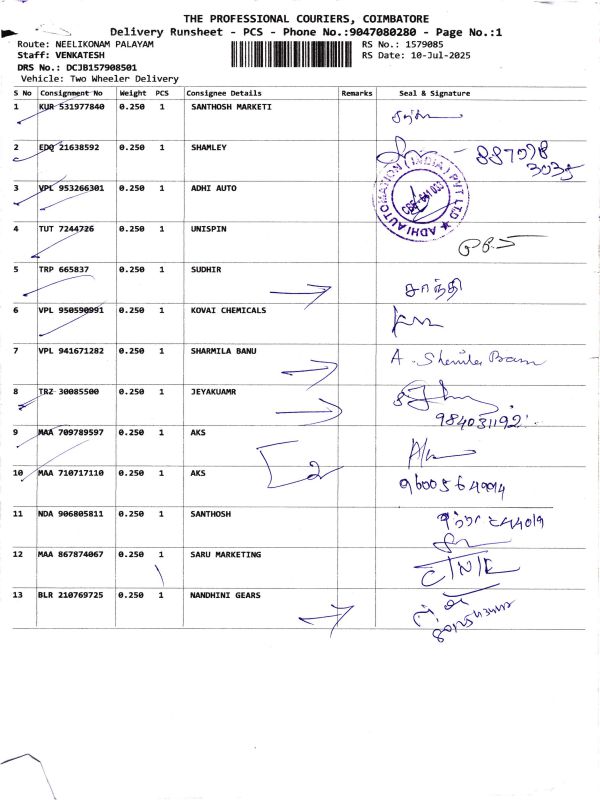 THE PROFESSIONAL COURIERS, COIMBATORE
Delivery Runsheet - PCS - Phone No.:9047080280 - Page No.:1
Route: NEELIKONAM PALAYAM RS No.: 1579085
Staff: VENKATESH RS Date: 10-Jul-2025
DRS No.: DCJB157908501
Vehicle: Two Wheeler Delivery
S No Consignment No Weight PCS Consignee Details Remarks Seal & Signature
1 KUR 531977840 0.250 1 SANTHOSH MARKETI
2 EDQ 21638592 0.250 1 SHAMLEY
3 VPL 953266301 0.250 1 ADHI AUTO
ADHI AUTOMATION (INDIA) PVT LTD
CBE-641 035
4 TUT 7244726 0.250 1 UNISPIN
5 TRP 665837 0.250 1 SUDHIR
சாந்தி
6 VPL 950590991 0.250 1 KOVAI CHEMICALS
7 VPL 941671282 0.250 1 SHARMILA BANU
A. Sharmila Banu
8 TRZ 30085500 0.250 1 JEYAKUAMR
9840311921
9 MAA 709789597 0.250 1 AKS
2
10 MAA 710717110 0.250 1 AKS
11 NDA 906805811 0.250 1 SANTHOSH
12 MAA 867874067 0.250 1 SARU MARKETING
13 BLR 210769725 0.250 1 NANDHINI GEARS